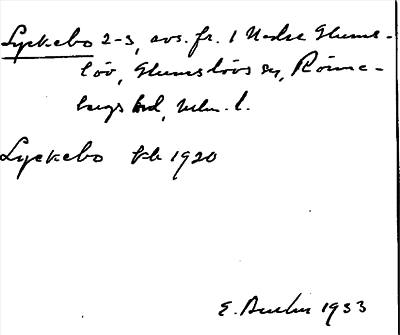 Lyckebo 2-3, avs. fr. 1 Nedre Glums-
löv, Glumslövs sn, Rönne-
bergs hd, Mlm. l.
Lyckebo Ek 1920
E. 1933